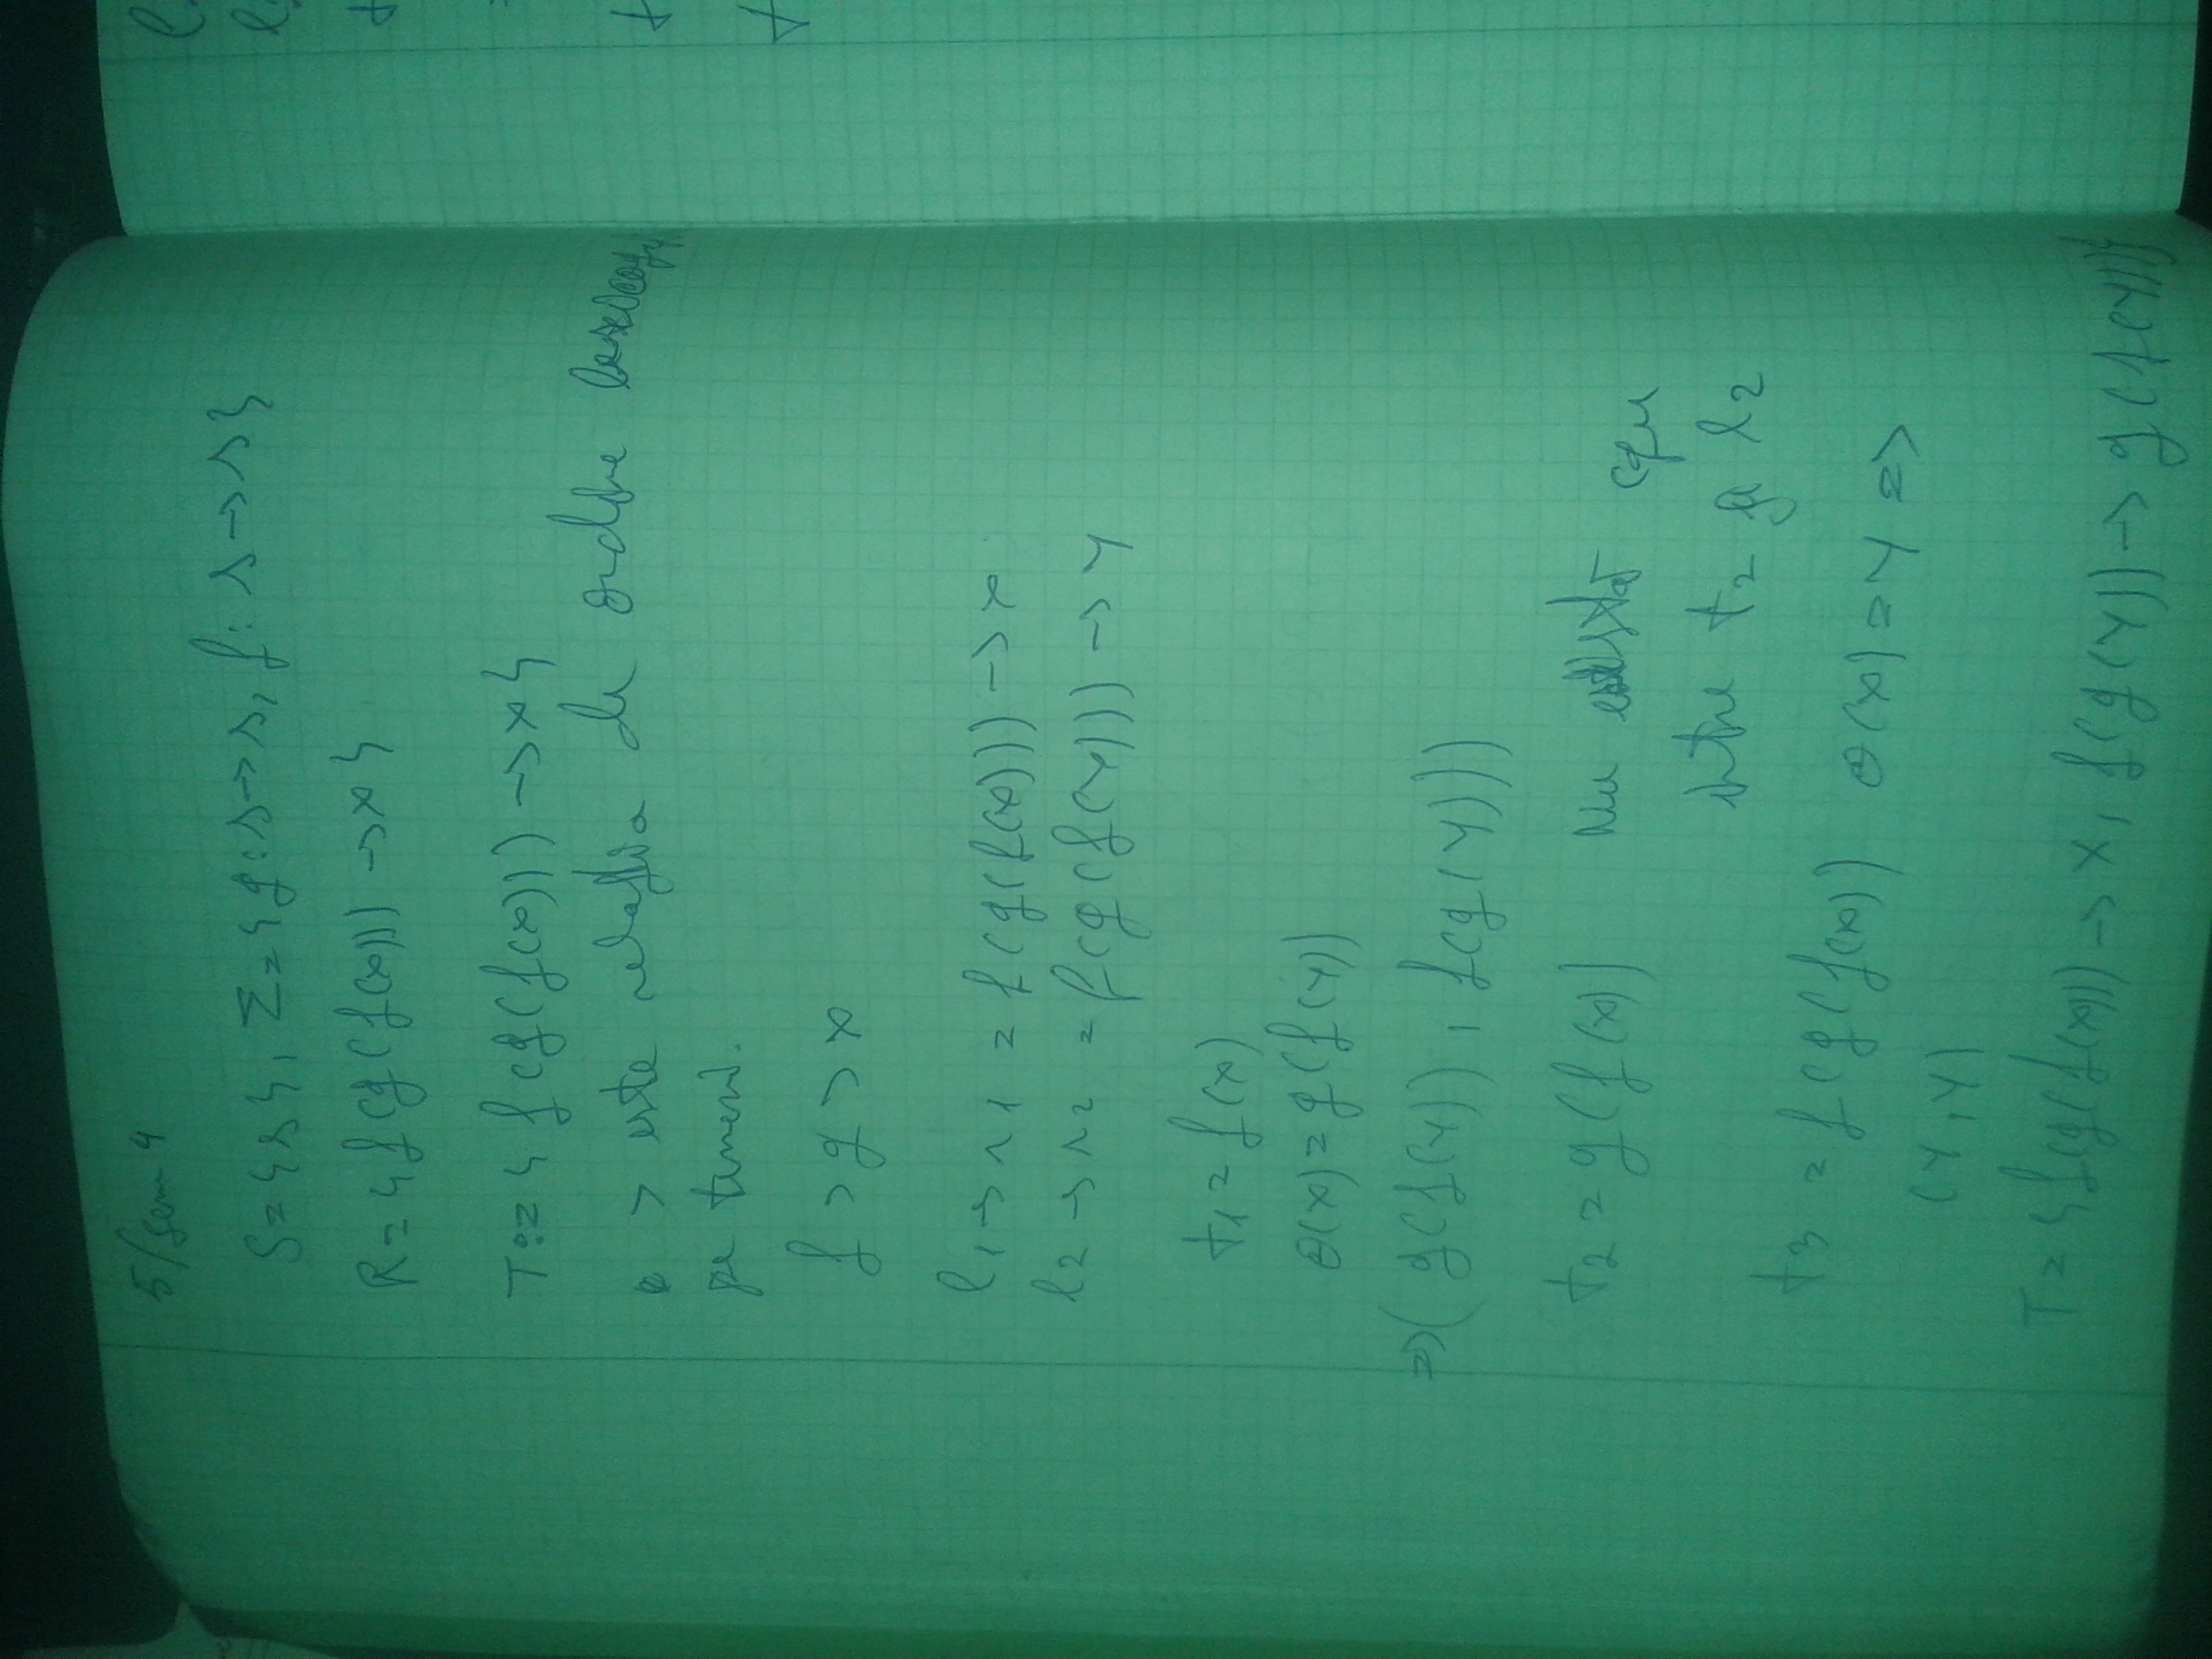 5/sem 4
S = {s}, Σ = {g: s → s, f: s → s}
R = {f(g(f(x))) → x}
T := {f(g(f(x))) → x}
> este relația de ordine lexicogr
pe termeni.
f > g > x
l1 → r1 = f(g(f(x))) → x
l2 → r2 = f(g(f(y))) → y
t1 = f(x)
θ(x) = g(f(y))
⇒ (g(f(y)), f(g(y)))
t2 = g(f(x)) Nu există cgu
între t2 și l2
t3 = f(g(f(x)) θ(x) = y ⇒
(y, y)
T = {f(g(f(x))) → x, f(g(y)) → g(f(y))}
l
l
t
t
t